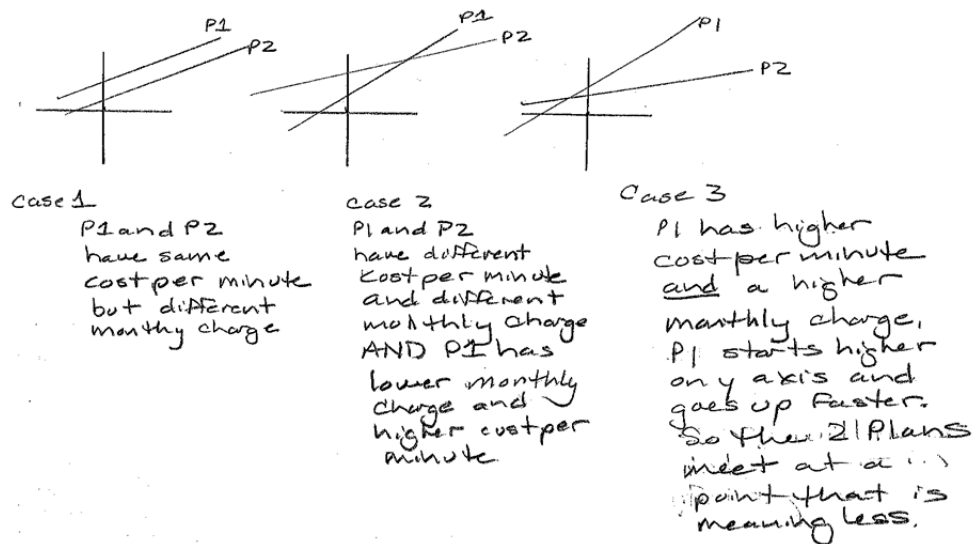 P1
P2
P1
P2
P1
P2
Case 1
P1 and P2
have same
cost per minute
but different
monthy charge
Case 2
P1 and P2
have different
cost per minute
and different
monthly charge
AND P1 has
lower monthly
charge and
higher cost per
minute
Case 3
P1 has higher
cost per minute
and a higher
monthly charge.
P1 starts higher
on y axis and
goes up faster.
So the 2 Plans
meet at a
point that is
meaning less.